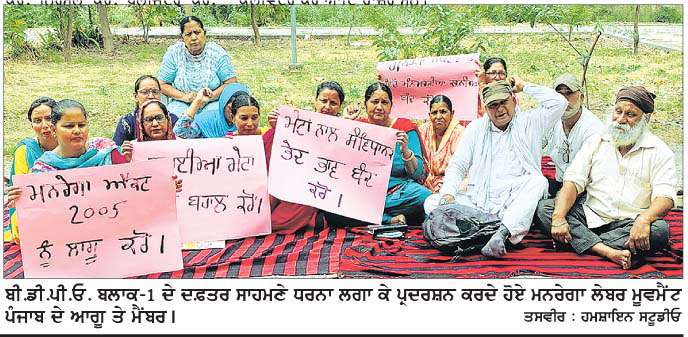 ਮਨਰੇਗਾ ਐਕਟ
2005
ਨੂੰ ਲਾਗੂ ਕਰੋ।
ਮੇਟਾਂ
ਬਹਾਲ ਕਰੋ।
ਮੇਟਾਂ ਨਾਲ
ਭੇਦ ਭਾਵ ਬੰਦ
ਕਰੋ।
ਬੰਦ ਕਰੋ।
ਬੀ.ਡੀ.ਪੀ.ਓ. ਬਲਾਕ-1 ਦੇ ਦਫ਼ਤਰ ਸਾਹਮਣੇ ਧਰਨਾ ਲਗਾ ਕੇ ਪ੍ਰਦਰਸ਼ਨ ਕਰਦੇ ਹੋਏ ਮਨਰੇਗਾ ਲੇਬਰ ਮੂਵਮੈਂਟ
ਪੰਜਾਬ ਦੇ ਆਗੂ ਤੇ ਮੈਂਬਰ।
ਤਸਵੀਰ : ਹਮਸ਼ਾਇਨ ਸਟੂਡੀਓ